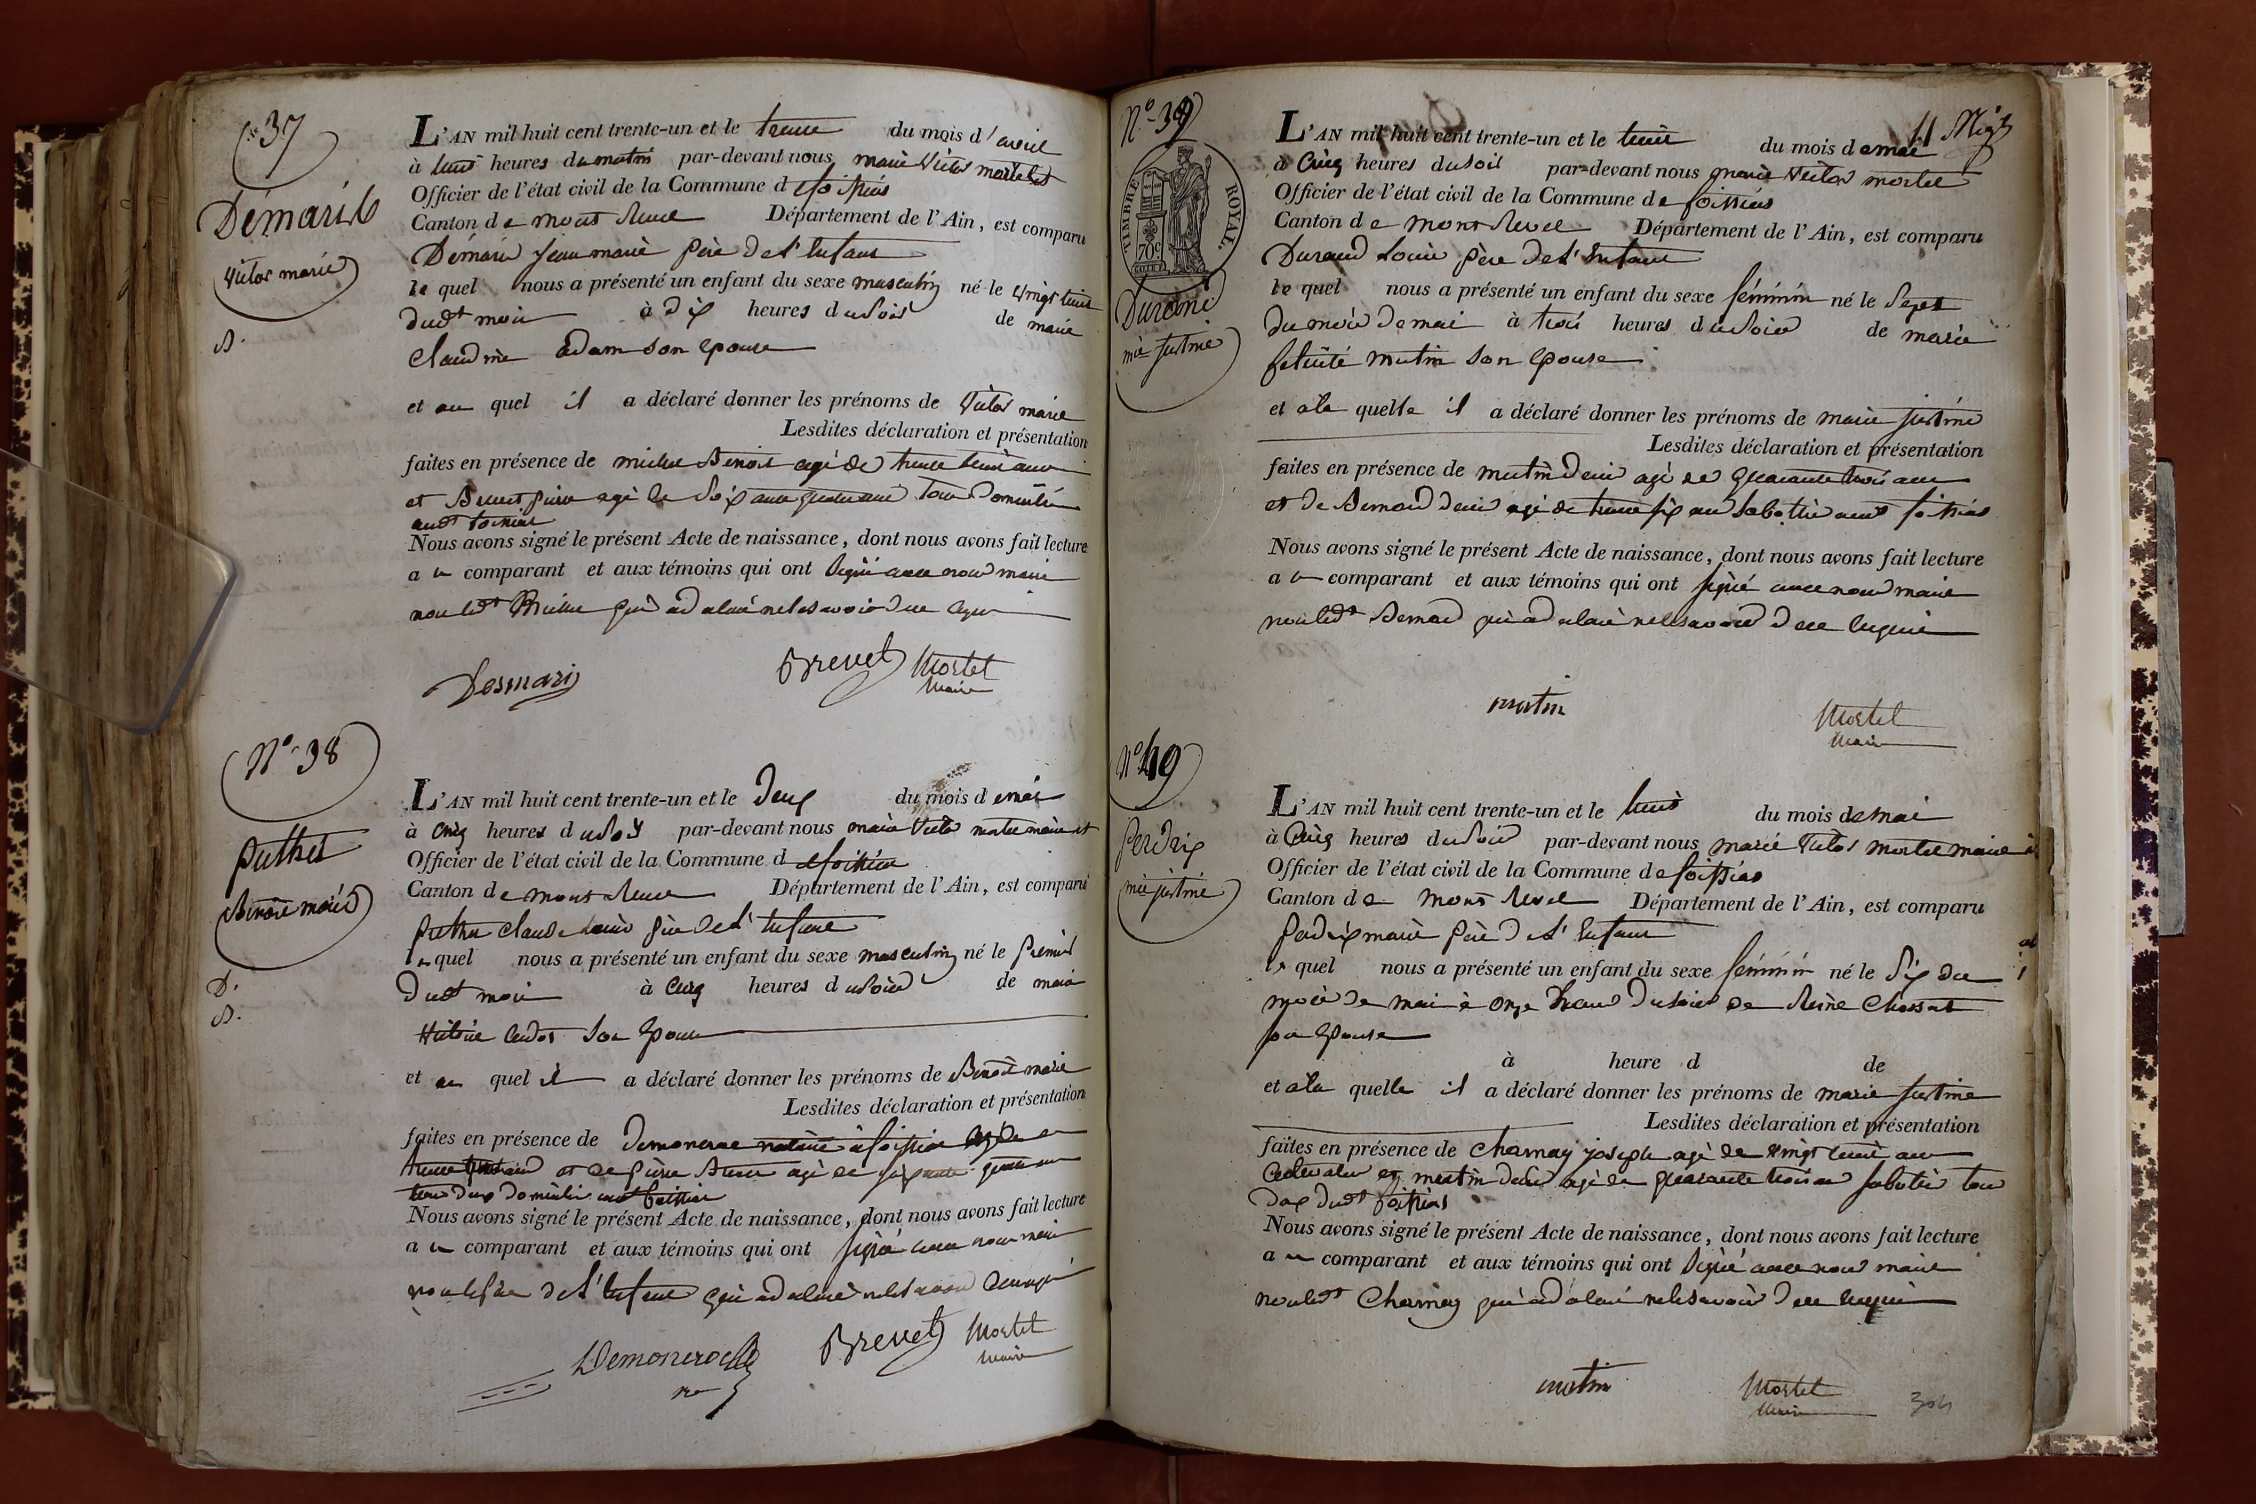 37
Démaris
Victor marie
L'AN mil huit cent trente-un et le trente du mois d'avril
à heures du matin par-devant nous marie Victor mortel
Officier de l'état civil de la Commune de foissiat
Canton de mont Revel Département de l'Ain, est comparu
Démaris Jean marie père de l'Enfant
le quel nous a présenté un enfant du sexe masculin né le vingt huit
dudt mois à dix heures du soir de marie
Claudine adam son epouse
et au quel il a déclaré donner les prénoms de Victor marie
Lesdites déclaration et présentation
faites en présence de michel Benoit agé de trente ans
et Brevet pierre agé de soixante quatre ans tous Domiciliés
audt foissiat
Nous avons signé le présent Acte de naissance, dont nous avons fait lecture
au comparant et aux témoins qui ont signé avec nous maire
non ledt Michel qui a déclaré ne le savoir de ce requis
Desmaris Brevet Mortel
Maire
N° 38
puthet
Benoit marie
D.
L'AN mil huit cent trente-un et le Deux du mois de mai
à cinq heures du soir par-devant nous marie Victor mortel maire et
Officier de l'état civil de la Commune de foissiat
Canton de mont Revel Département de l'Ain, est comparu
puthet Claude Louis père de l'Enfant
le quel nous a présenté un enfant du sexe masculin né le premier
dudt mois à cinq heures du soir de marie
son Epouse
et au quel il a déclaré donner les prénoms de Benoit marie
Lesdites déclaration et présentation
faites en présence de notaire à foissiat agé de
et de pierre Brevet agé de soixante quatre ans
tous deux domiciliés audt foissiat
Nous avons signé le présent Acte de naissance, dont nous avons fait lecture
au comparant et aux témoins qui ont signé avec nous maire
non le père de l'Enfant qui a déclaré ne le savoir de ce requis
Brevet Mortel
Maire
N° 39
TIMBRE ROYAL.
70c.
Durand
mie justine
L'AN mil huit cent trente-un et le huit du mois de mai
à Cinq heures du soir par-devant nous marie Victor mortel
Officier de l'état civil de la Commune de foissiat
Canton de mont Revel Département de l'Ain, est comparu
Durand Louis père de l'Enfant
le quel nous a présenté un enfant du sexe féminin né le Sept
du mois de mai à trois heures du soir de marie
felicité mutin son epouse
et à la quelle il a déclaré donner les prénoms de marie justine
Lesdites déclaration et présentation
faites en présence de mutin denis agé de quarante trois ans
et de Bernard denis agé de trente six ans sabotier audt foissiat
Nous avons signé le présent Acte de naissance, dont nous avons fait lecture
au comparant et aux témoins qui ont signé avec nous maire
non ledt Bernard qui a déclaré ne le savoir de ce requis
mutin Mortel
Maire
N° 40
perdrix
mie justine
L'AN mil huit cent trente-un et le huit du mois de mai
à Cinq heures du soir par-devant nous marie Victor mortel maire et
Officier de l'état civil de la Commune de foissiat
Canton de mont Revel Département de l'Ain, est comparu
perdrix marie père de l'Enfant
le quel nous a présenté un enfant du sexe féminin né le six du
mois de mai à onze heures du soir de Reine Chossat
son epouse
à heure d de
et à la quelle il a déclaré donner les prénoms de marie justine
Lesdites déclaration et présentation
faites en présence de Charnay joseph agé de vingt huit ans
cultivateur et mutin denis agé de quarante trois ans sabotier tous
deux dudt foissiat
Nous avons signé le présent Acte de naissance, dont nous avons fait lecture
au comparant et aux témoins qui ont signé avec nous maire
non ledt Charnay qui a déclaré ne le savoir de ce requis
mutin Mortel
Maire
304